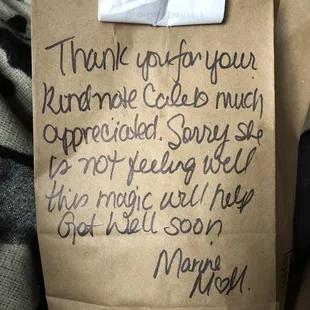 Thank you for your
Kind note Caleb much
appreciated. Sorry she
is not feeling well
this magic will help
Get Well soon